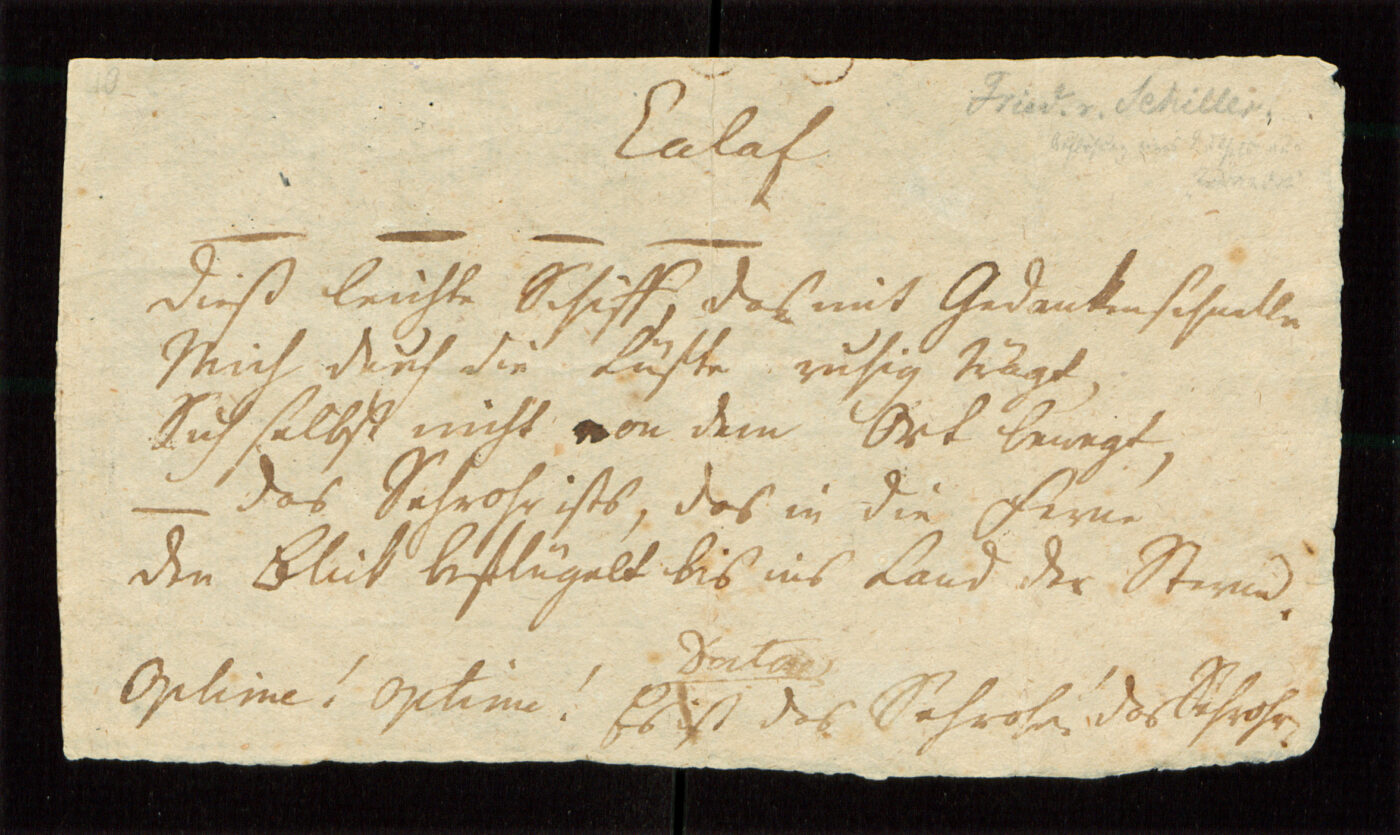 10
Fried. v. Schiller.
Calaf
Dieß leichte Schiff, das mit Gedankenschnelle
Mich durch die Lüfte ruhig trägt,
Sich selbst nicht von dem Ort bewegt,
— das Sehrohr ists, das in die Ferne
den Blick beflügelt bis ins Land der Sterne.
Doctores
Optime! optime! Es ist das Sehrohr! das Sehrohr